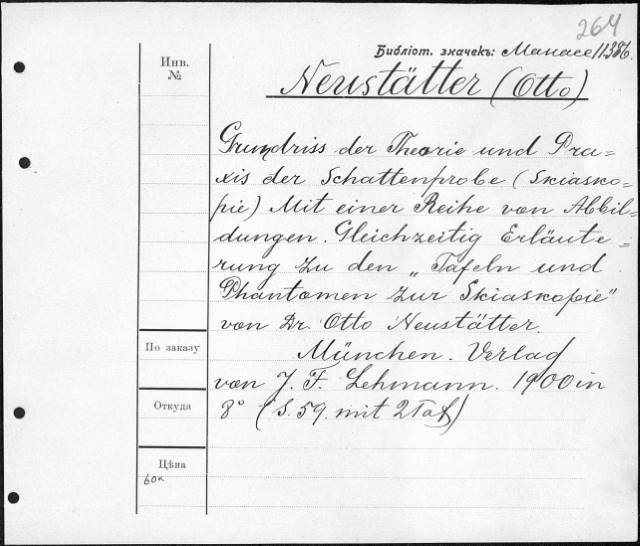 264
Библіот. значекъ: Манасе 11386.
Инв.
№
Neustätter (Otto)
Grundriss der Theorie und Pra=
xis der Schattenprobe (Skiasko=
pie) Mit einer Reihe von Abbil=
dungen. Gleichzeitig Erläute=
rung zu den „Tafeln und
Phantomen zur Skiaskopie"
von Dr. Otto Neustätter.
По заказу
München. Verlag
von J. F. Lehmann. 1900 in
Откуда
8° (S. 59. mit 2 Taf)
Цѣна
60к